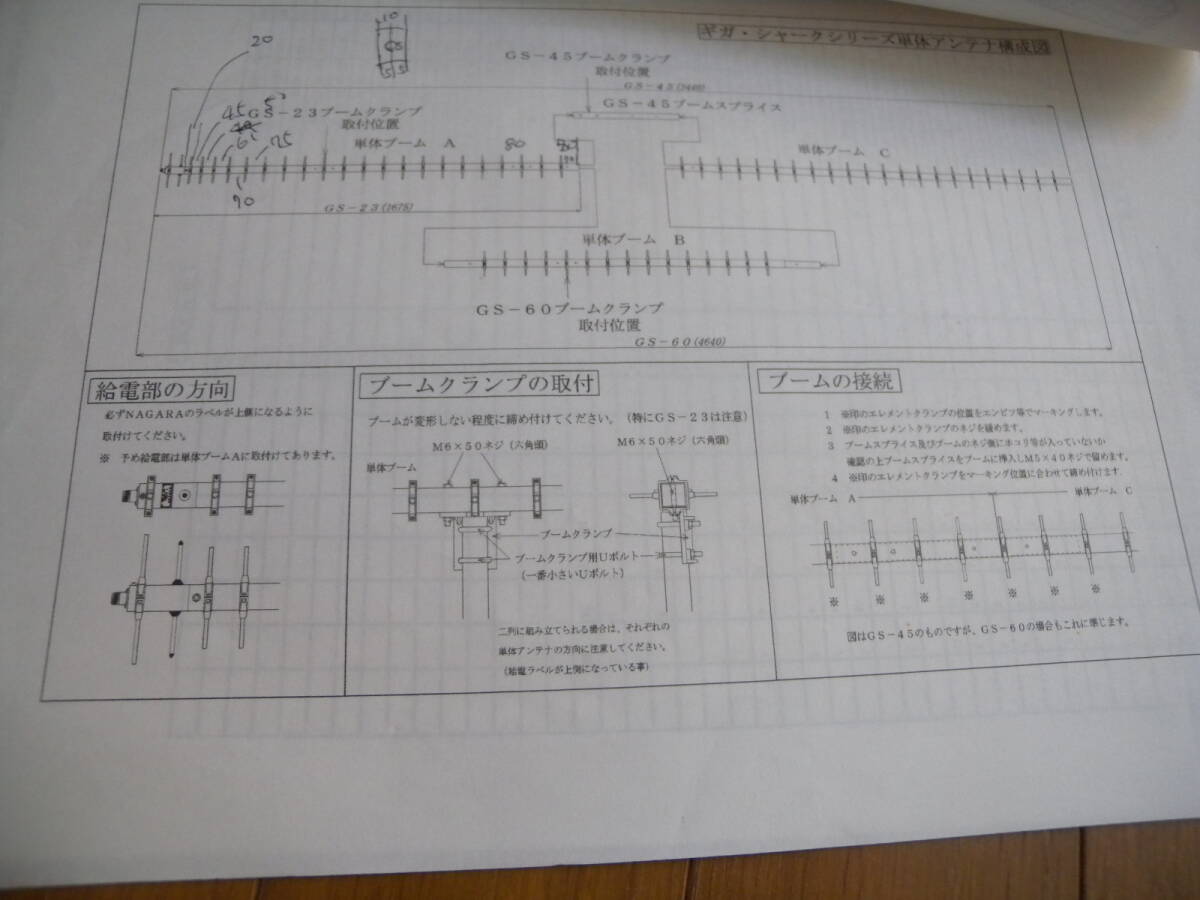 ギガ・シャークシリーズ単体アンテナ構成図
10
20
5 5
GS-45ブームクランプ
取付位置
GS-45ブームスプライス
45
GS-23ブームクランプ
取付位置
65
75
90
単体ブーム A
80
単体ブーム C
GS-23(1675)
単体ブーム B
GS-60ブームクランプ
取付位置
GS-60(4640)
給電部の方向
必ずNAGARAのラベルが上側になるように
取付けてください。
※ 予め給電部は単体ブームAに取付けてあります。
ブームクランプの取付
ブームが変形しない程度に締め付けてください。(特にGS-23は注意)
M6×50ネジ(六角頭)
M6×50ネジ(六角頭)
単体ブーム
ブームクランプ
ブームクランプ用Uボルト
(一番小さいUボルト)
二列に組み立てられる場合は、それぞれの
単体アンテナの方向に注意してください。
(給電ラベルが上側になっている事)
ブームの接続
1 ※印のエレメントクランプの位置をエンピツ等でマーキングします。
2 ※印のエレメントクランプのネジを緩めます。
3 ブームスプライス及びブームのネジ側にホコリ等が入っていないか
確認の上ブームスプライスをブームに挿入しM5×40ネジで留めます。
4 ※印のエレメントクランプをマーキング位置に合わせて締め付けます.
単体ブーム A
単体ブーム C
※ ※ ※ ※ ※ ※ ※
図はGS-45のものですが、GS-60の場合もこれに準じます。